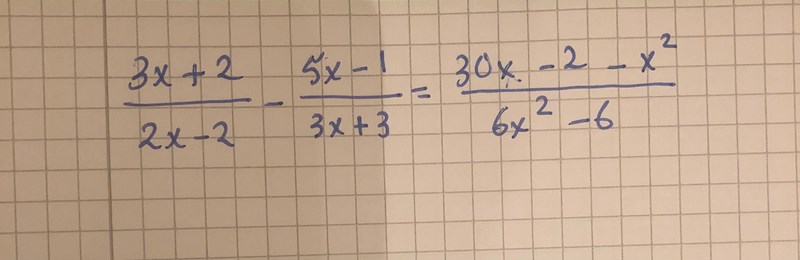 (3x + 2)/(2x - 2) - (5x - 1)/(3x + 3) = (30x - 2 - x²)/(6x² - 6)